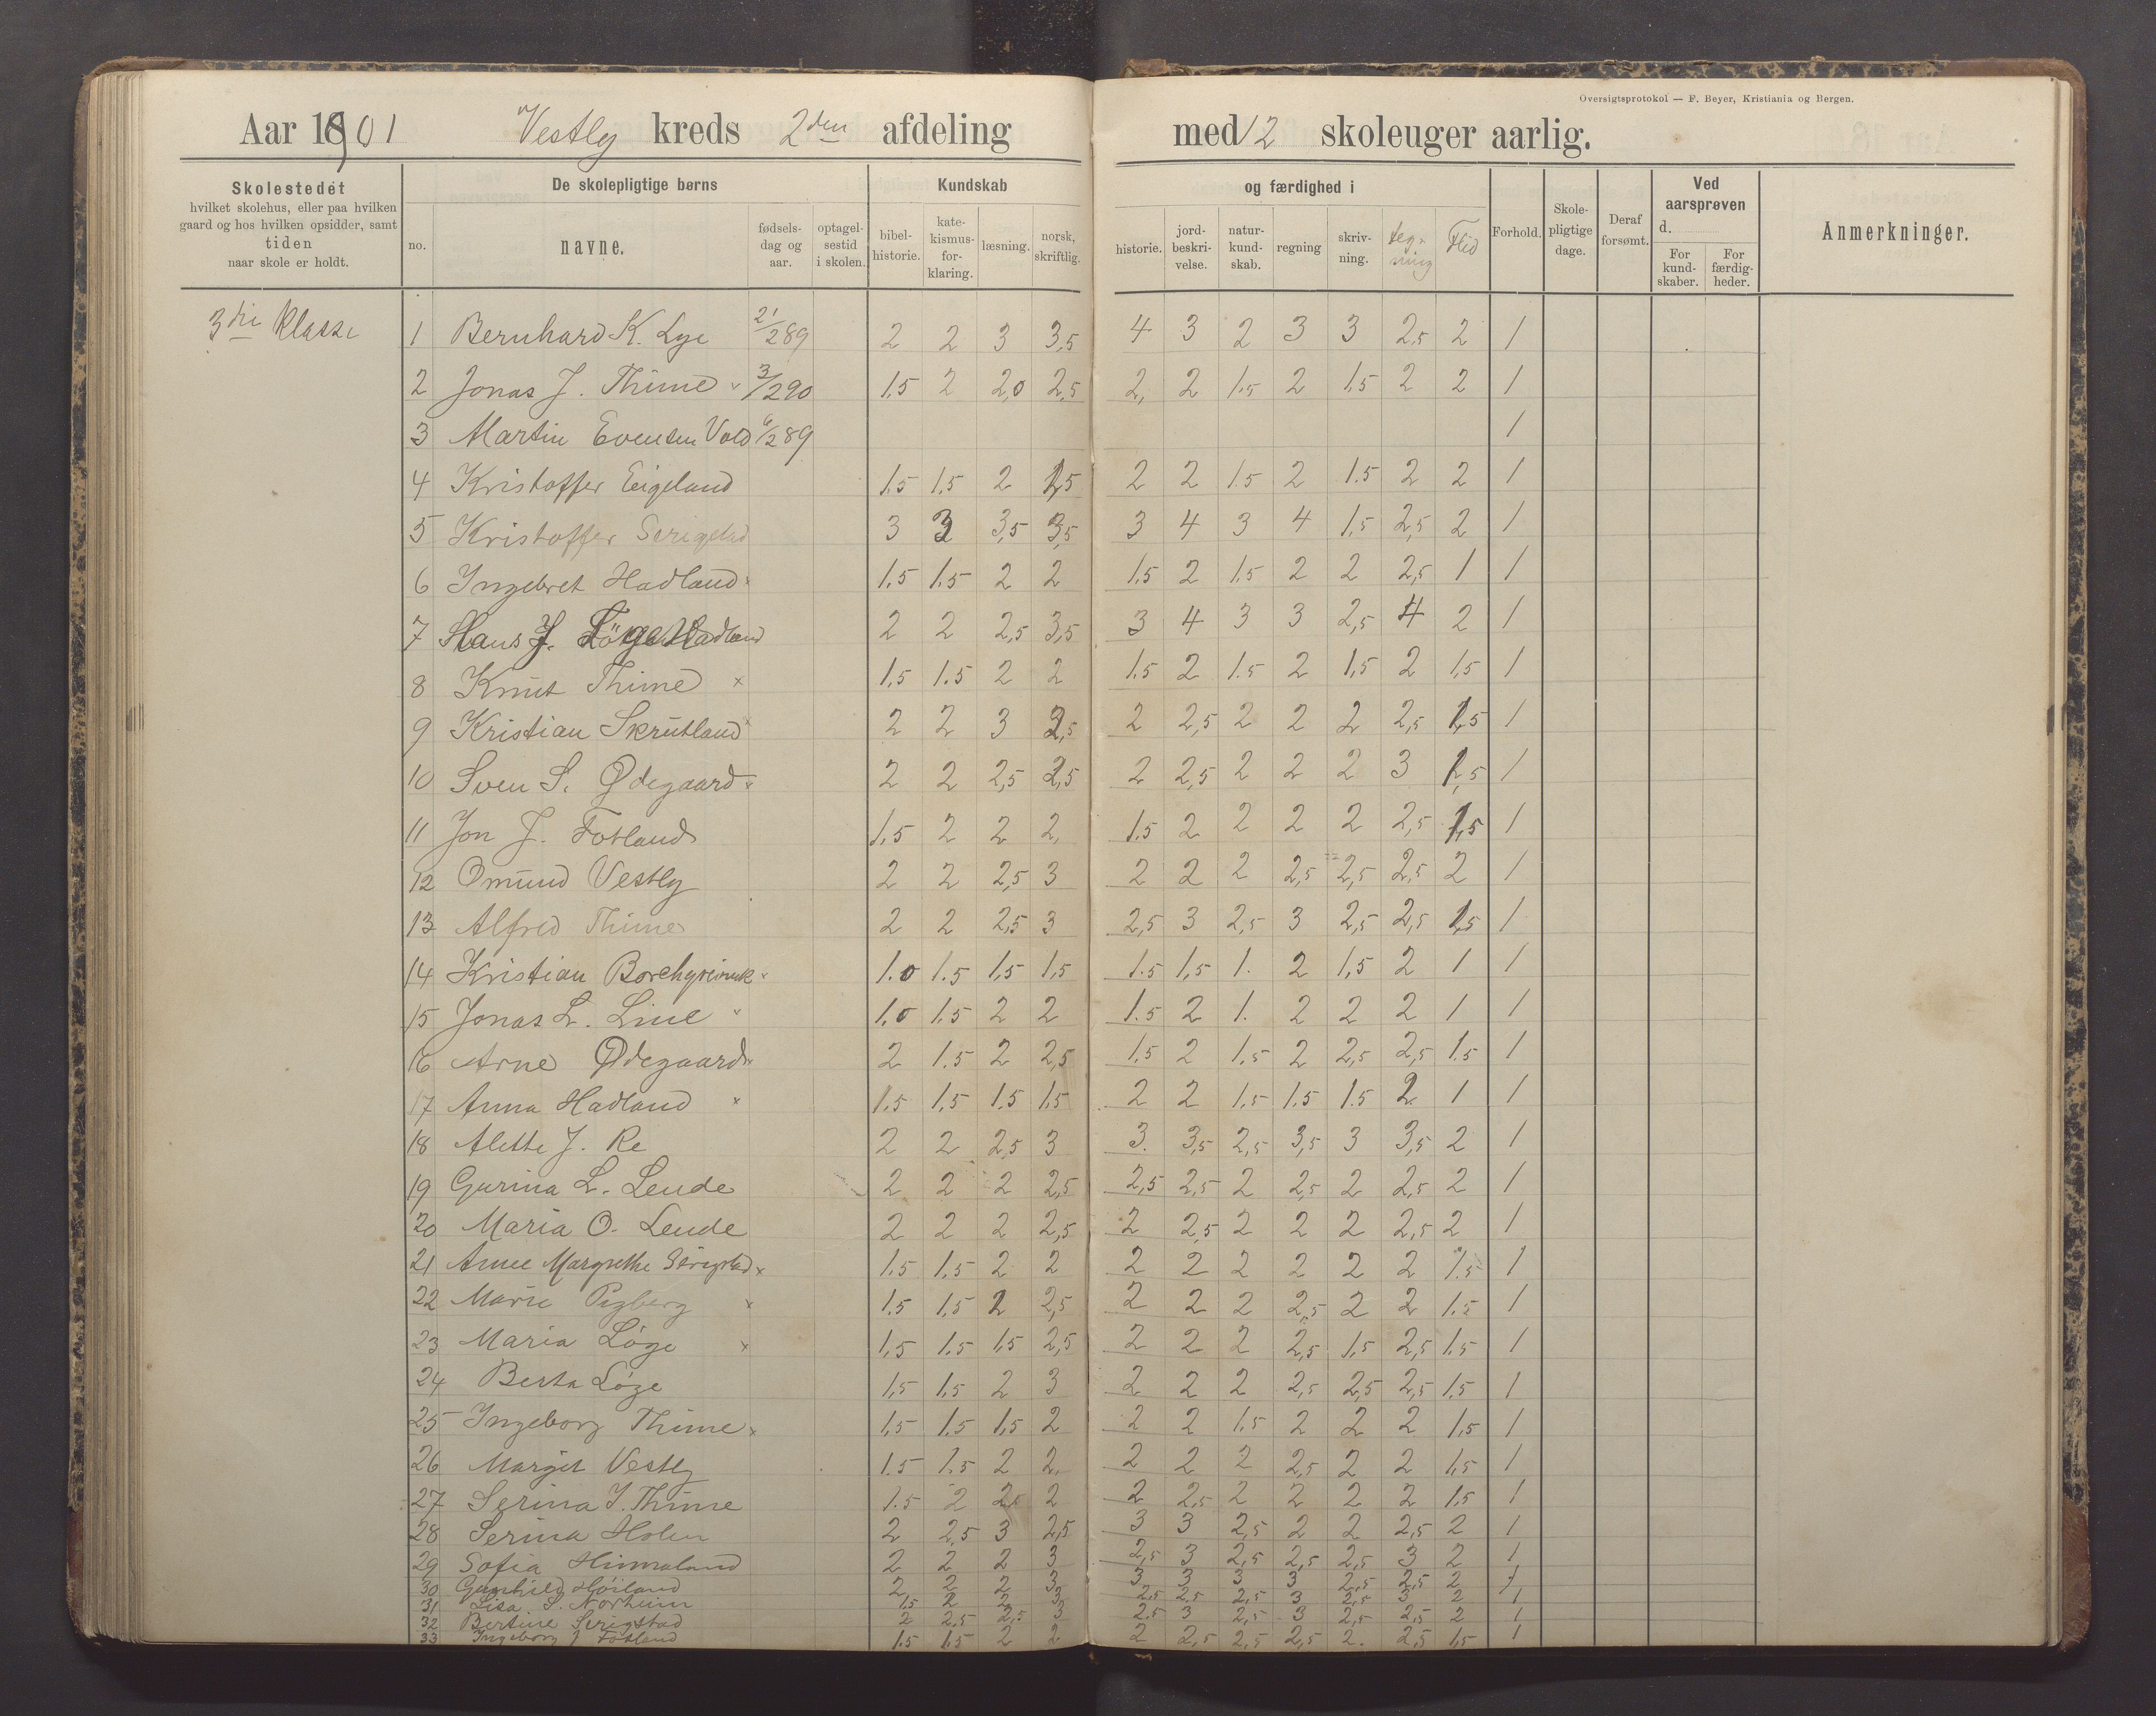 Oversigtsprotokol — F. Beyer, Kristiania og Bergen.
Aar 1901 Vestly kreds 2den afdeling med 12 skoleuger aarlig.
Skolestedet hvilket skolehus, eller paa hvilken gaard og hos hvilken opsidder, samt tiden naar skole er holdt.
De skolepligtige børns
no. navne. fødsels-dag og aar. optagel-sestid i skolen.
Kundskab og færdighed i
bibel-historie. kate-kismus-for-klaring. læsning. norsk, skriftlig. historie. jord-beskri-velse. natur-kund-skab. regning skriv-ning. teg-ning Flid
Forhold. Skole-pligtige dage. Deraf forsømt. Ved aarsprøven d. For kund-skaber. For færdig-heder. Anmerkninger.
3die klasse
1 Bernhard K. Lye 21/2 89 2 2 3 3,5 4 3 2 3 3 2,5 2 1
2 Jonas J. Thime 3/2 90 1,5 2 2,0 2,5 2, 2 1.5 2 1.5 2 2 1
3 Martin Evensen Vold 6/2 89 1
4 Kristoffer Eigeland 1.5 1.5 2 1,5 2 2 1.5 2 1.5 2 2 1
5 Kristoffer Serigstad 3 3 3,5 3,5 3 4 3 4 1,5 2,5 2 1
6 Ingebret Hadland 1.5 1.5 2 2 1.5 2 1.5 2 2 2,5 1 1
7 Hans J. Hadland 2 2 2,5 3,5 3 4 3 3 2,5 4 2 1
8 Knut Thime × 1,5 1.5 2 2 1.5 2 1.5 2 1,5 2 1,5 1
9 Kristian Skrutland 2 2 3 3,5 2 2,5 2 2 2 2,5 1,5 1
10 Sven S. Ødegaard 2 2 2,5 2,5 2 2,5 2 2 2 3 1,5 1
11 Jon J. Fotland 1,5 2 2 2, 1.5 2 2 2 2 2,5 1,5 1
12 Omund Vestly 2 2 2,5 3 2 2 2 2,5 2,5 2,5 2 1
13 Alfred Thime 2 2 2,5 3 2,5 3 2,5 3 2,5 2,5 1,5 1
14 Kristian 1.0 1.5 1,5 1,5 1.5 1,5 1. 2 1,5 2 1 1
15 Jonas L. Line 1.0 1.5 2 2 1.5 2 1. 2 2 2 1 1
16 Arne Ødegaard 2 1.5 2 2,5 1.5 2 1.5 2 2,5 2,5 1.5 1
17 Anna Hadland × 1.5 1,5 1.5 1,5 2 2 1.5 1.5 1.5 2 1 1
18 Alette J. Re 2 2 2,5 3 3. 3,5 2,5 3,5 3 3,5 2 1
19 Gurina L. Lende 2 2 2 2,5 2,5 2,5 2 2,5 2 2,5 2 1
20 Maria O. Lende 2 2 2 2,5 2 2,5 2 2 2 2,5 2 1
21 Anne Margrethe Serigstad × 1.5 1.5 2 2 2 2 2 2 2 2 1.5 1
22 Marie × 1.5 1.5 2 2,5 2 2 2 2,5 2 2 1.5 1
23 Maria Løge × 1,5 1.5 1,5 2,5 2 2 2 2,5 1,5 2,5 1.5 1
24 Berta Løge 1,5 1,5 2 3 2 2 2 2,5 2,5 2,5 1,5 1
25 Ingeborg Thime × 1,5 1.5 1,5 2 2 2 1,5 2 2 2 1,5 1
26 Margit Vestly 1.5 1.5 2 2. 2 2 2 2,5 2 2 1,5 1
27 Serina J. Thime 1.5 2 2,5 2 2 2,5 2 2 2 2 1,5 1
28 Serina Holen 2 2,5 3 2,5 3 3 2,5 2 2 2,5 2 1
29 Sofia Himmaland 2 2 2 3 2,5 3 2,5 2,5 2,5 3 2 1
30 Gunhild Høiland 2 2 2 3 3 3 3 3 2,5 2,5 2 1
31 Lisa S. Norheim 1.5 2 2 3 2,5 2,5 2,5 3 2,5 3 2 1
32 Bertine Serigstad 2 2,5 2,5 3 2.5 3 2,5 3 2,5 2,5 2 1
33 Ingeborg J Fotland 1.5 1.5 2 2 2 2,5 2,5 2,5 2. 2,5 1,5 1